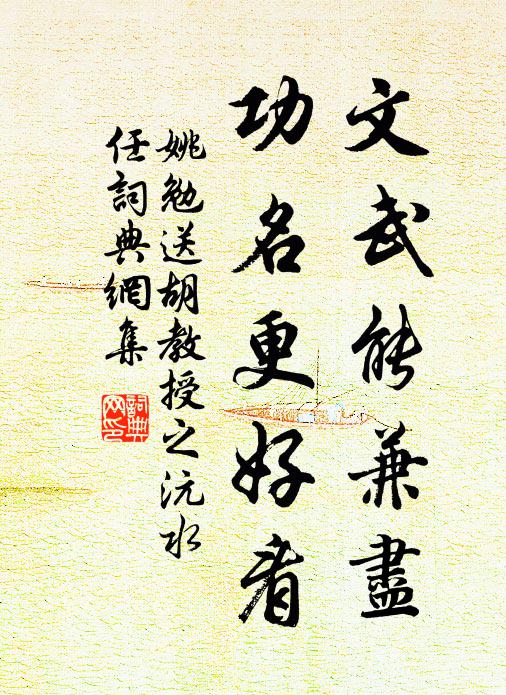 文武能兼盡
功名更好看
姚勉送胡教授之沅水
任詞典網集
詞典網印